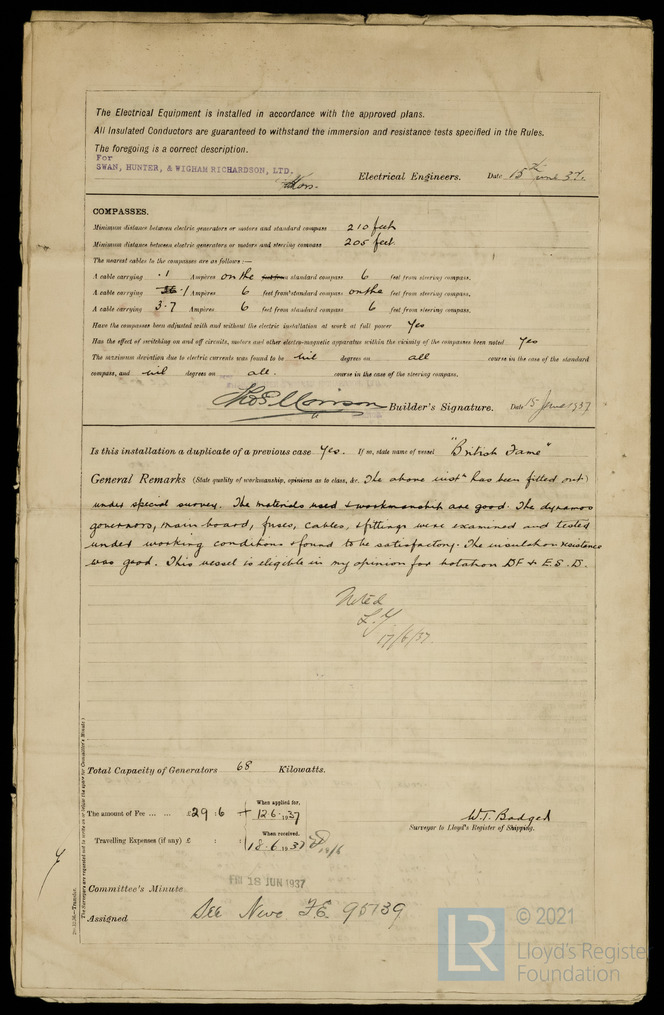 The Electrical Equipment is installed in accordance with the approved plans.
All Insulated Conductors are guaranteed to withstand the immersion and resistance tests specified in the Rules.
The foregoing is a correct description.
For
SWAN, HUNTER, & WIGHAM RICHARDSON, LTD.
Electrical Engineers. Date 15th June 37.
COMPASSES.
Minimum distance between electric generators or motors and standard compass 210 feet
Minimum distance between electric generators or motors and steering compass 205 feet
The nearest cables to the compasses are as follows:—
A cable carrying .1 Ampères on the standard compass 6 feet from steering compass.
A cable carrying .1 Ampères 6 feet from standard compass on the feet from steering compass.
A cable carrying 3.7 Ampères 6 feet from standard compass 6 feet from steering compass.
Have the compasses been adjusted with and without the electric installation at work at full power Yes
Has the effect of switching on and off circuits, motors and other electro-magnetic apparatus within the vicinity of the compasses been noted Yes
The maximum deviation due to electric currents was found to be nil degrees on all course in the case of the standard
compass, and nil degrees on all. course in the case of the steering compass.
Builder's Signature. Date 15 June 1937
Is this installation a duplicate of a previous case Yes. If so, state name of vessel "British Fame"
General Remarks (State quality of workmanship, opinions as to class, &c. The above instn has been fitted out)
under special survey. The materials used & workmanship are good. The dynamos
governors, main board, fuses, cables, & fittings were examined and tested
under working conditions & found to be satisfactory. The insulation resistance
was good. This vessel is eligible in my opinion for notation DF & E.S.D.
Noted
17/6/37.
Total Capacity of Generators 68 Kilowatts.
The amount of Fee ... ... £29 : 6 When applied for, 12.6.1937
Travelling Expenses (if any) £ : : When received, 18.6.1937
W.T. Badger
Surveyor to Lloyd's Register of Shipping.
FRI 18 JUN 1937
Committee's Minute
Assigned See Nwc. F.E. 95739
The Surveyors are requested not to write on or below the space for Committee's Minute
© 2021
LR
Lloyd's Register
Foundation